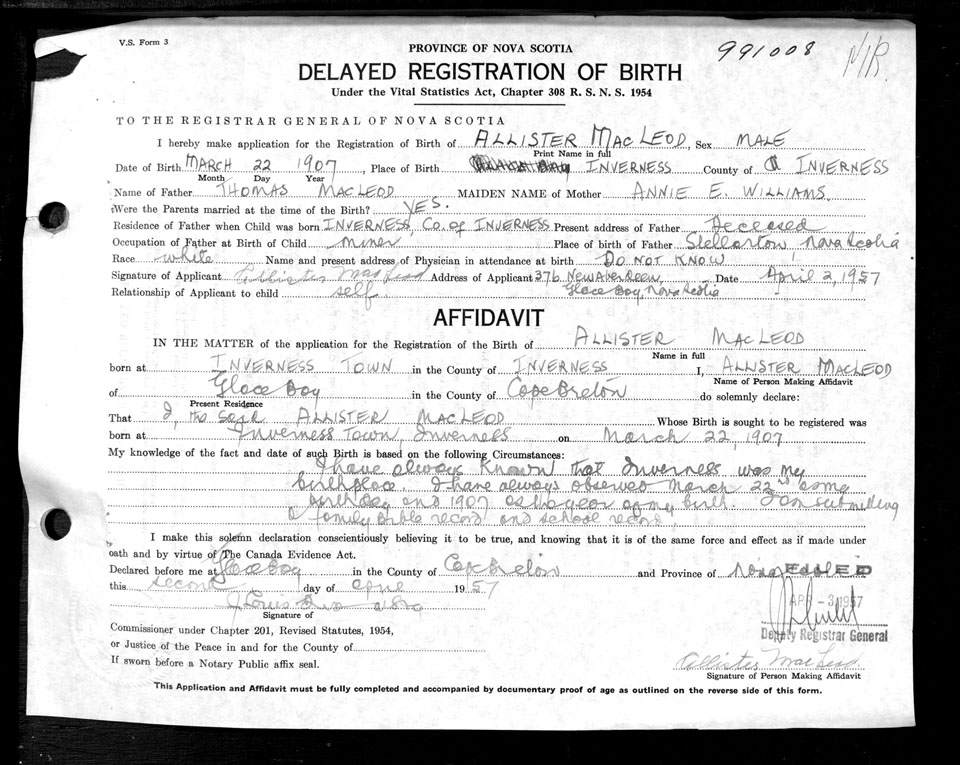 V.S. Form 3
PROVINCE OF NOVA SCOTIA
991008
N/R.
DELAYED REGISTRATION OF BIRTH
Under the Vital Statistics Act, Chapter 308 R. S. N. S. 1954
TO THE REGISTRAR GENERAL OF NOVA SCOTIA
I hereby make application for the Registration of Birth of ALLISTER MacLEOD, Sex MALE
Print Name in full
Date of Birth MARCH 22 1907, Place of Birth INVERNESS County of INVERNESS
Month Day Year
Name of Father THOMAS MACLEOD MAIDEN NAME of Mother ANNIE E. WILLIAMS.
Were the Parents married at the time of the Birth? YES.
Residence of Father when Child was born INVERNESS, Co. of INVERNESS Present address of Father Deceased
Occupation of Father at Birth of Child miner Place of birth of Father Stellarton Nova Scotia
Race white Name and present address of Physician in attendance at birth DO NOT KNOW
Signature of Applicant Allister MacLeod Address of Applicant 376 New Aberdeen, Date April 2, 1957
Relationship of Applicant to child self Glace Bay, Nova Scotia
AFFIDAVIT
IN THE MATTER of the application for the Registration of the Birth of ALLISTER MacLEOD
Name in full
born at INVERNESS TOWN in the County of INVERNESS I, ALLISTER MacLEOD
Name of Person Making Affidavit
of Glace Bay in the County of Cape Breton do solemnly declare:
Present Residence
That I, the said ALLISTER MacLEOD Whose Birth is sought to be registered was
born at Inverness Town, Inverness on March 22, 1907
My knowledge of the fact and date of such Birth is based on the following Circumstances:
I have always known that Inverness was my
birthplace. I have always observed March 22nd as my
birthday and 1907 as the year of my birth. I am submitting
a family bible record and school record
I make this solemn declaration conscientiously believing it to be true, and knowing that it is of the same force and effect as if made under
oath and by virtue of The Canada Evidence Act.
Declared before me at Glace Bay in the County of Cape Breton and Province of Nova
this second day of April 1957
APR -3 1957
Signature of
Commissioner under Chapter 201, Revised Statutes, 1954,
Deputy Registrar General
or Justice of the Peace in and for the County of
If sworn before a Notary Public affix seal.
Allister MacLeod
Signature of Person Making Affidavit
This Application and Affidavit must be fully completed and accompanied by documentary proof of age as outlined on the reverse side of this form.